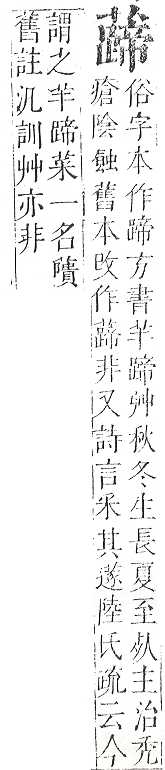 俗字本作蹄方書羊蹄艸秋冬生長夏至主治禿
瘡陰蝕舊本改作非又詩言采其蓫陸氏疏云今
謂之羊蹄菜一名隤
舊註汎訓艸亦非